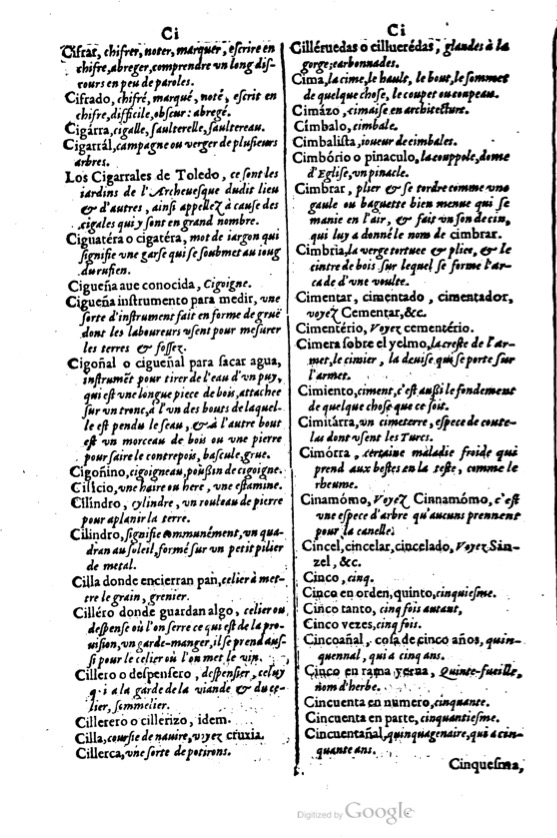 Ci
Cifrar, chifrer, noter, marquer, escrire en
chifre, abreger, comprendre un long dis-
cours en peu de paroles.
Cifrado, chifré, marqué, noté, escrit en
chifre, difficile, obscur: abregé.
Cigárra, cigalle, saulterelle, saultereau.
Cigarrál, campagne ou verger de plusieurs
arbres.
Los Cigarrales de Toledo, ce sont les
iardins de l'Archeuesque dudit lieu
& d'autres, ainsi appellez à cause des
cigales qui y sont en grand nombre.
Ciguatéra o cigatéra, mot de iargon qui
signifie une garse qui se soubmet au ioug
du rufien.
Cigueña aue conocida, Cigoigne.
Cigueña instrumento para medir, une
sorte d'instrument fait en forme de gruë
dont les laboureurs usent pour mesurer
les terres & fossez.
Cigoñal o cigueñal para sacar agua,
instrumẽt pour tirer de l'eau d'un puy,
qui est une longue piece de bois, attachee
sur un tronc, à l'un des bouts delaquel-
le est pendu le seau, & à l'autre bout
est un morceau de bois ou une pierre
pour faire le contrepois, bascule, grue.
Cigoñino, cigoigneau, poußin de cigoigne.
Cilicio, une haire ou here, une estamine.
Cilindro, cylindre, un rouleau de pierre
pour aplanir la terre.
Cilindro, signifie communément, un qua-
dran au soleil, formé sur un petit pilier
de metal.
Cilla donde encierran pan, celier à met-
tre le grain, grenier.
Cilléro donde guardan algo, celier ou
despense où l'on serre ce qui est de la pro-
uision, un garde-manger, il se prend aus-
si pour le celier où l'on met le vin.
Cillero o despensero, despensier, celuy
q.i a la garde de la viande & du ce-
lier, sommelier.
Cillerero o cillerizo, idem.
Cilla, coursie de nauire, voyez cruxia.
Cillerca, une sorte de potirons.
Ci
Cilléruedas o cilluerédas, glandes à la
gorge; carbonnades.
Cima, la cime, le hault, le bout, le sommet
de quelque chose, le coupet ou coupeau.
Cimázo, cimaise en architecture.
Címbalo, cimbale.
Cimbalista, ioueur de cimbales.
Cimbório o pinaculo, la couppole, dome
d'Eglise, un pinacle.
Cimbrar, plier & se tordre comme une
gaule ou baguette bien menue qui se
manie en l'air, & fait un son de cin,
qui luy a donné le nom de cimbrar.
Cimbria, la verge tortuee & plier, & le
cintre de bois sur lequel se forme l'ar-
cade d'une voulte.
Cimentar, cimentado, cimentador,
voyez Cementar, &c.
Cimentério, Voyez cementério.
Cimera sobre el yelmo, la creste de l'ar-
met, le cimier, la deuise qui se porte sur
l'armet.
Cimiento, ciment, c'est außi le fondement
de quelque chose que ce soit.
Cimitárra, un cimeterre, espece de coute-
las dont usent les Turcs.
Cimórra, certaine maladie froide qui
prend aux bestes en la teste, comme le
rheume.
Cinamómo, Voyez Cinnamómo, c'est
une espece d'arbre qu'aucuns prennent
pour la canelle.
Cincel, cincelar, cincelado, Voyez Sin-
zel, &c.
Cinco, cinq.
Cinco en orden, quinto, cinquiesme.
Cinco tanto, cinq fois autant,
Cinco vezes, cinq fois.
Cincoañal, cosa de cinco años, quin-
quennal, qui a cinq ans.
Cinco en rama yerua, Quinte-fueille,
nom d'herbe.
Cincuenta en numero, cinquante.
Cincuenta en parte, cinquantiesme.
Cincuentañal, quinquagenaire, qui a cin-
quante ans.
Cinquesma,
Digitized by Google